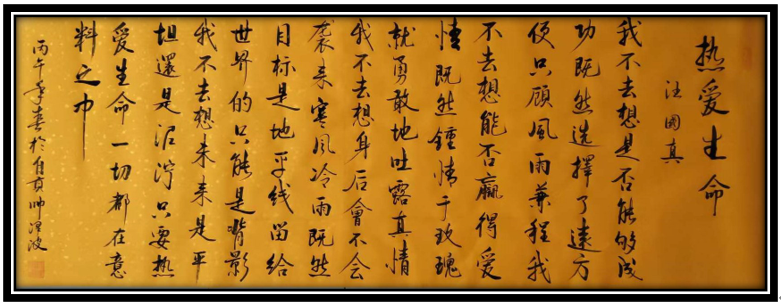 热爱生命
汪國真
我不去想是否能够成
功既然选擇了遠方
便只顾風雨兼程我
不去想能否赢得爱
情既然鍾情于玫瑰
就勇敢地吐露真情
我不去想身后會不会
袭来寒风冷雨既然
目标是地平线留给
世界的只能是背影
我不去想未来是平
坦還是泥泞只要热
爱生命一切都在意
料之中
丙午年春於自貢帅波